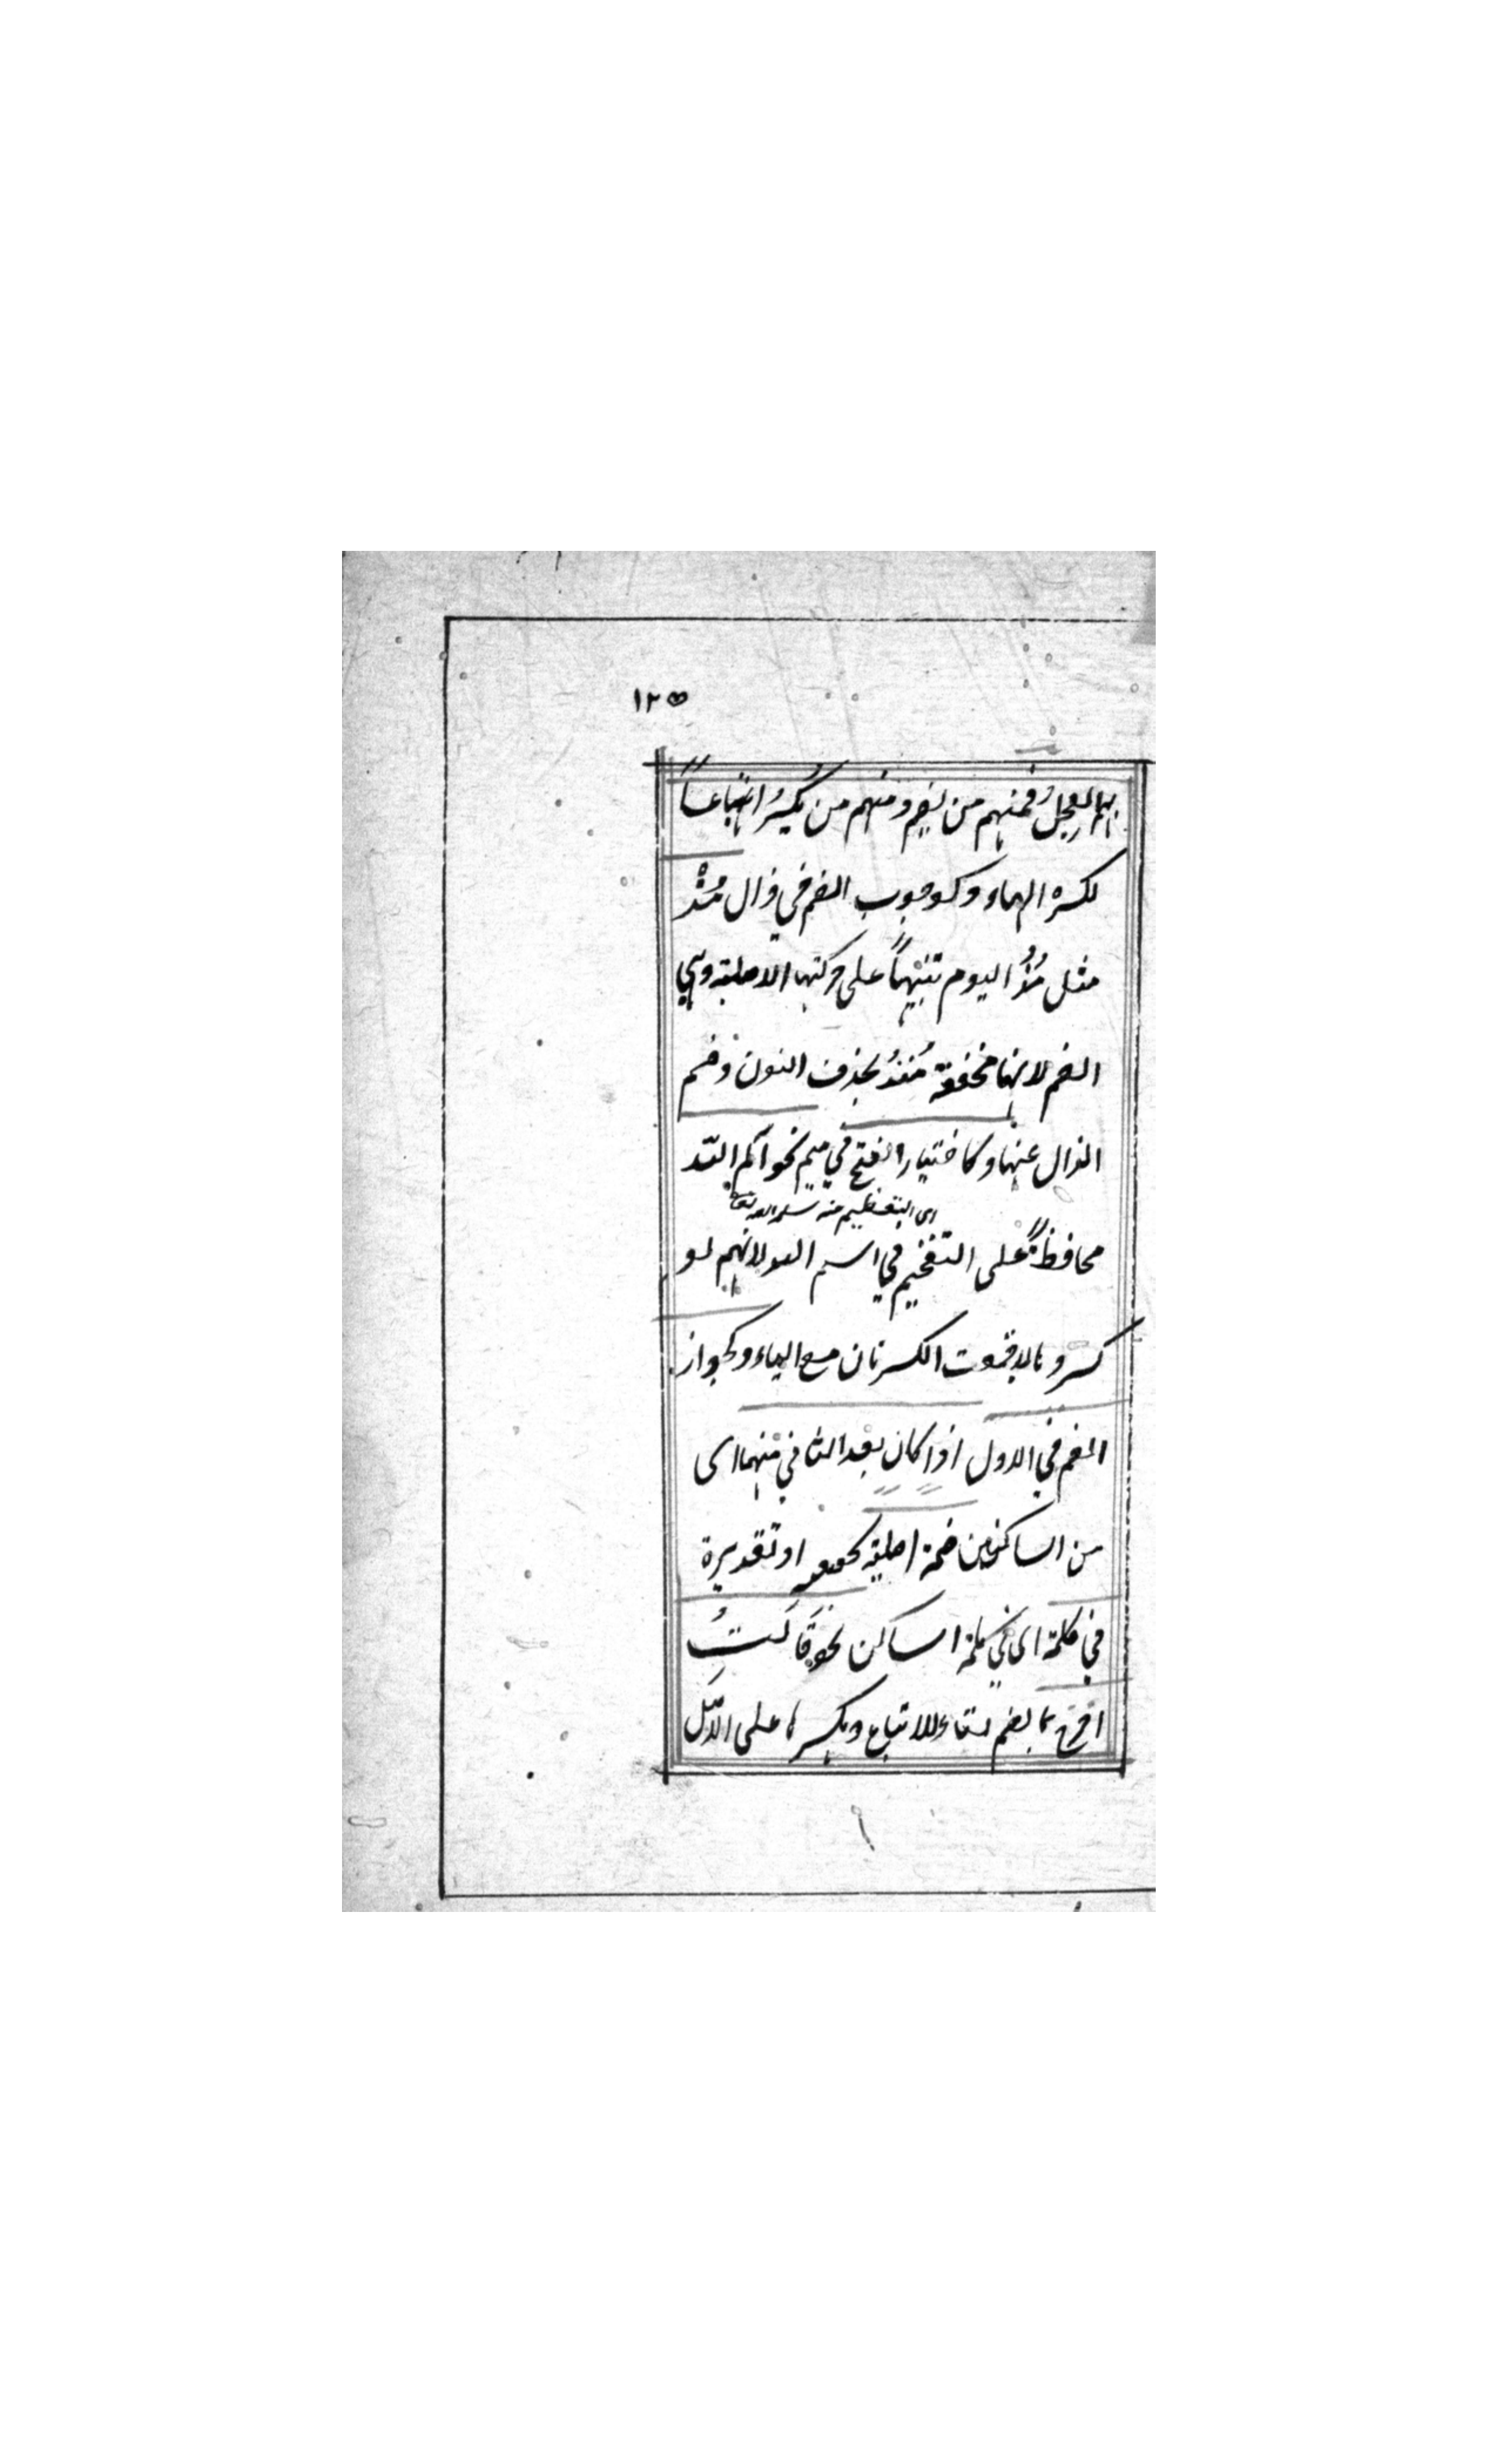 ١٢٥
بهم العجلُ فمنهم من يضم ومنهم من يكسِرُ اتباعاً
لكسرة الهاء وكوجوب الضم في ذال مُذْ
مثل مُذُ اليوم تنبيهاً على حركتها الاصلية وهي
الضم لانها مخففة مُنذُ بحذف النون وضم
الذال عنها وكاختيار الفتح في ميم نحو آلم الله
اى التعظيم منه سلمه الله تعا
محافظةً على التفخيم في اسم الله لانهم لو
كسروا لاجتمعت الكسرتان مع الياء وكجواز
الضم في الاول اذا كان بعد الثاني منهما اى
من الساكنين ضمة اصلية او تقديرة
في كلمة اى في كلمة الساكن نحو قَالَتُِ
اخرج بالضم للاتباع وبكسرها على الاصل